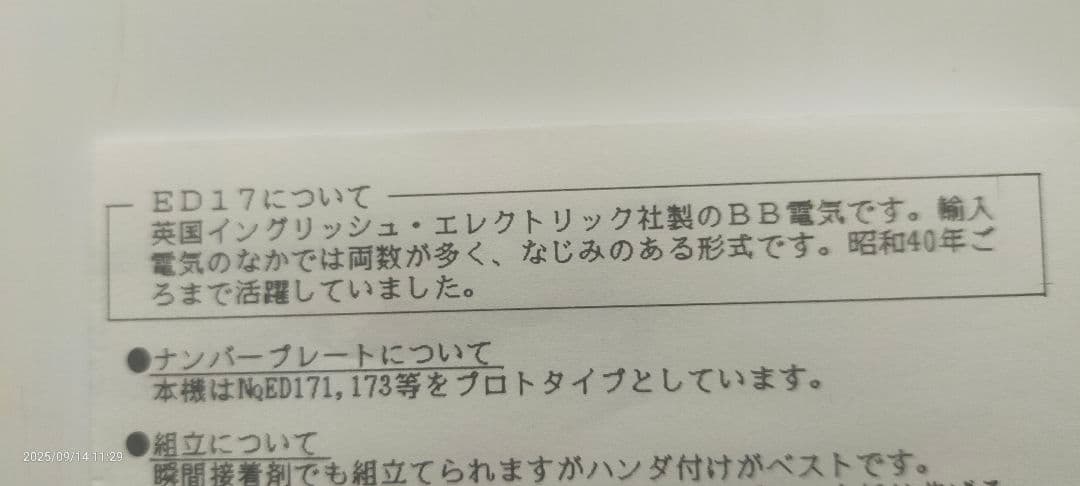 ED17について
英国イングリッシュ・エレクトリック社製のBB電気です。輸入
電気のなかでは両数が多く、なじみのある形式です。昭和40年ご
ろまで活躍していました。
●ナンバープレートについて
本機は№ED171,173等をプロトタイプとしています。
●組立について
瞬間接着剤でも組立てられますがハンダ付けがベストです。
2025/09/14 11:29